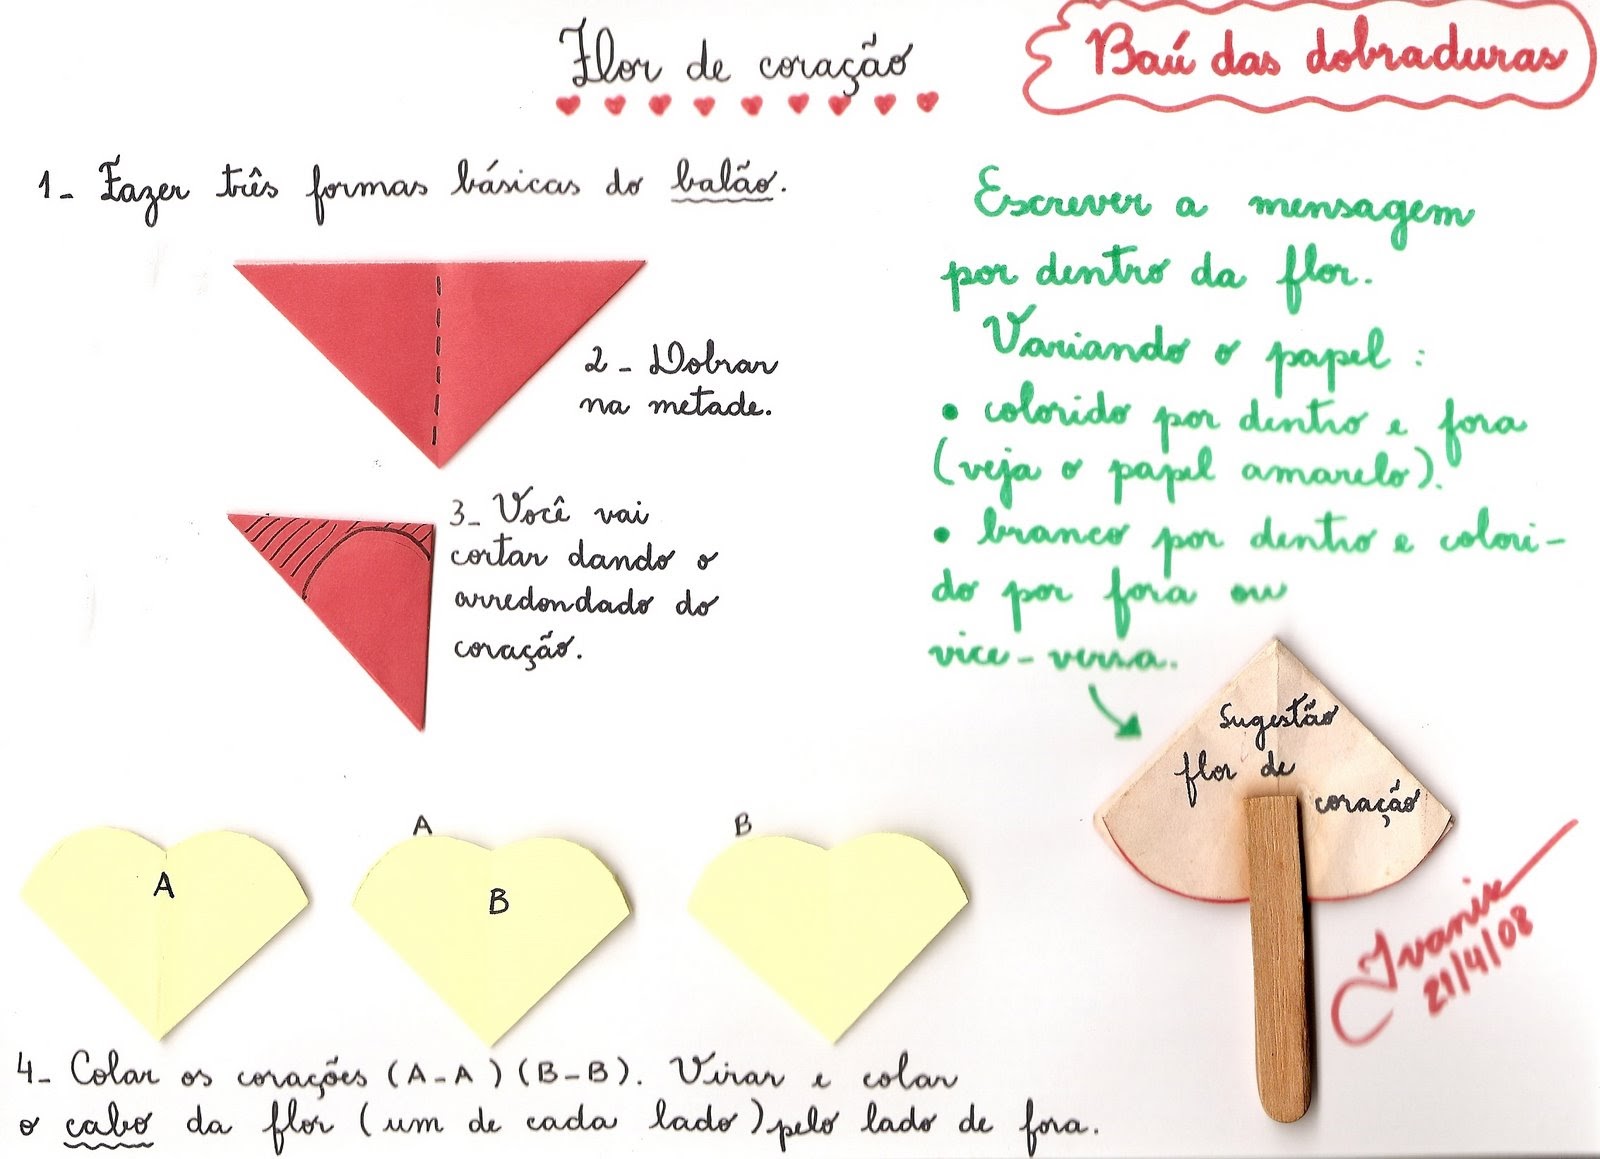 Flor de coração
Baú das dobraduras
1- Fazer três formas básicas do balão.
2- Dobrar
na metade.
3- Você vai
cortar dando o
arredondado do
coração.
A
A
B
B
4- Colar os corações (A-A) (B-B). Virar e colar
o cabo da flor (um de cada lado) pelo lado de fora.
Escrever a mensagem
por dentro da flor.
Variando o papel:
• colorido por dentro e fora
(veja o papel amarelo).
• branco por dentro e colori-
do por fora ou
vice-versa.
Sugestão
flor de
coração
Ivanise
21/4/08